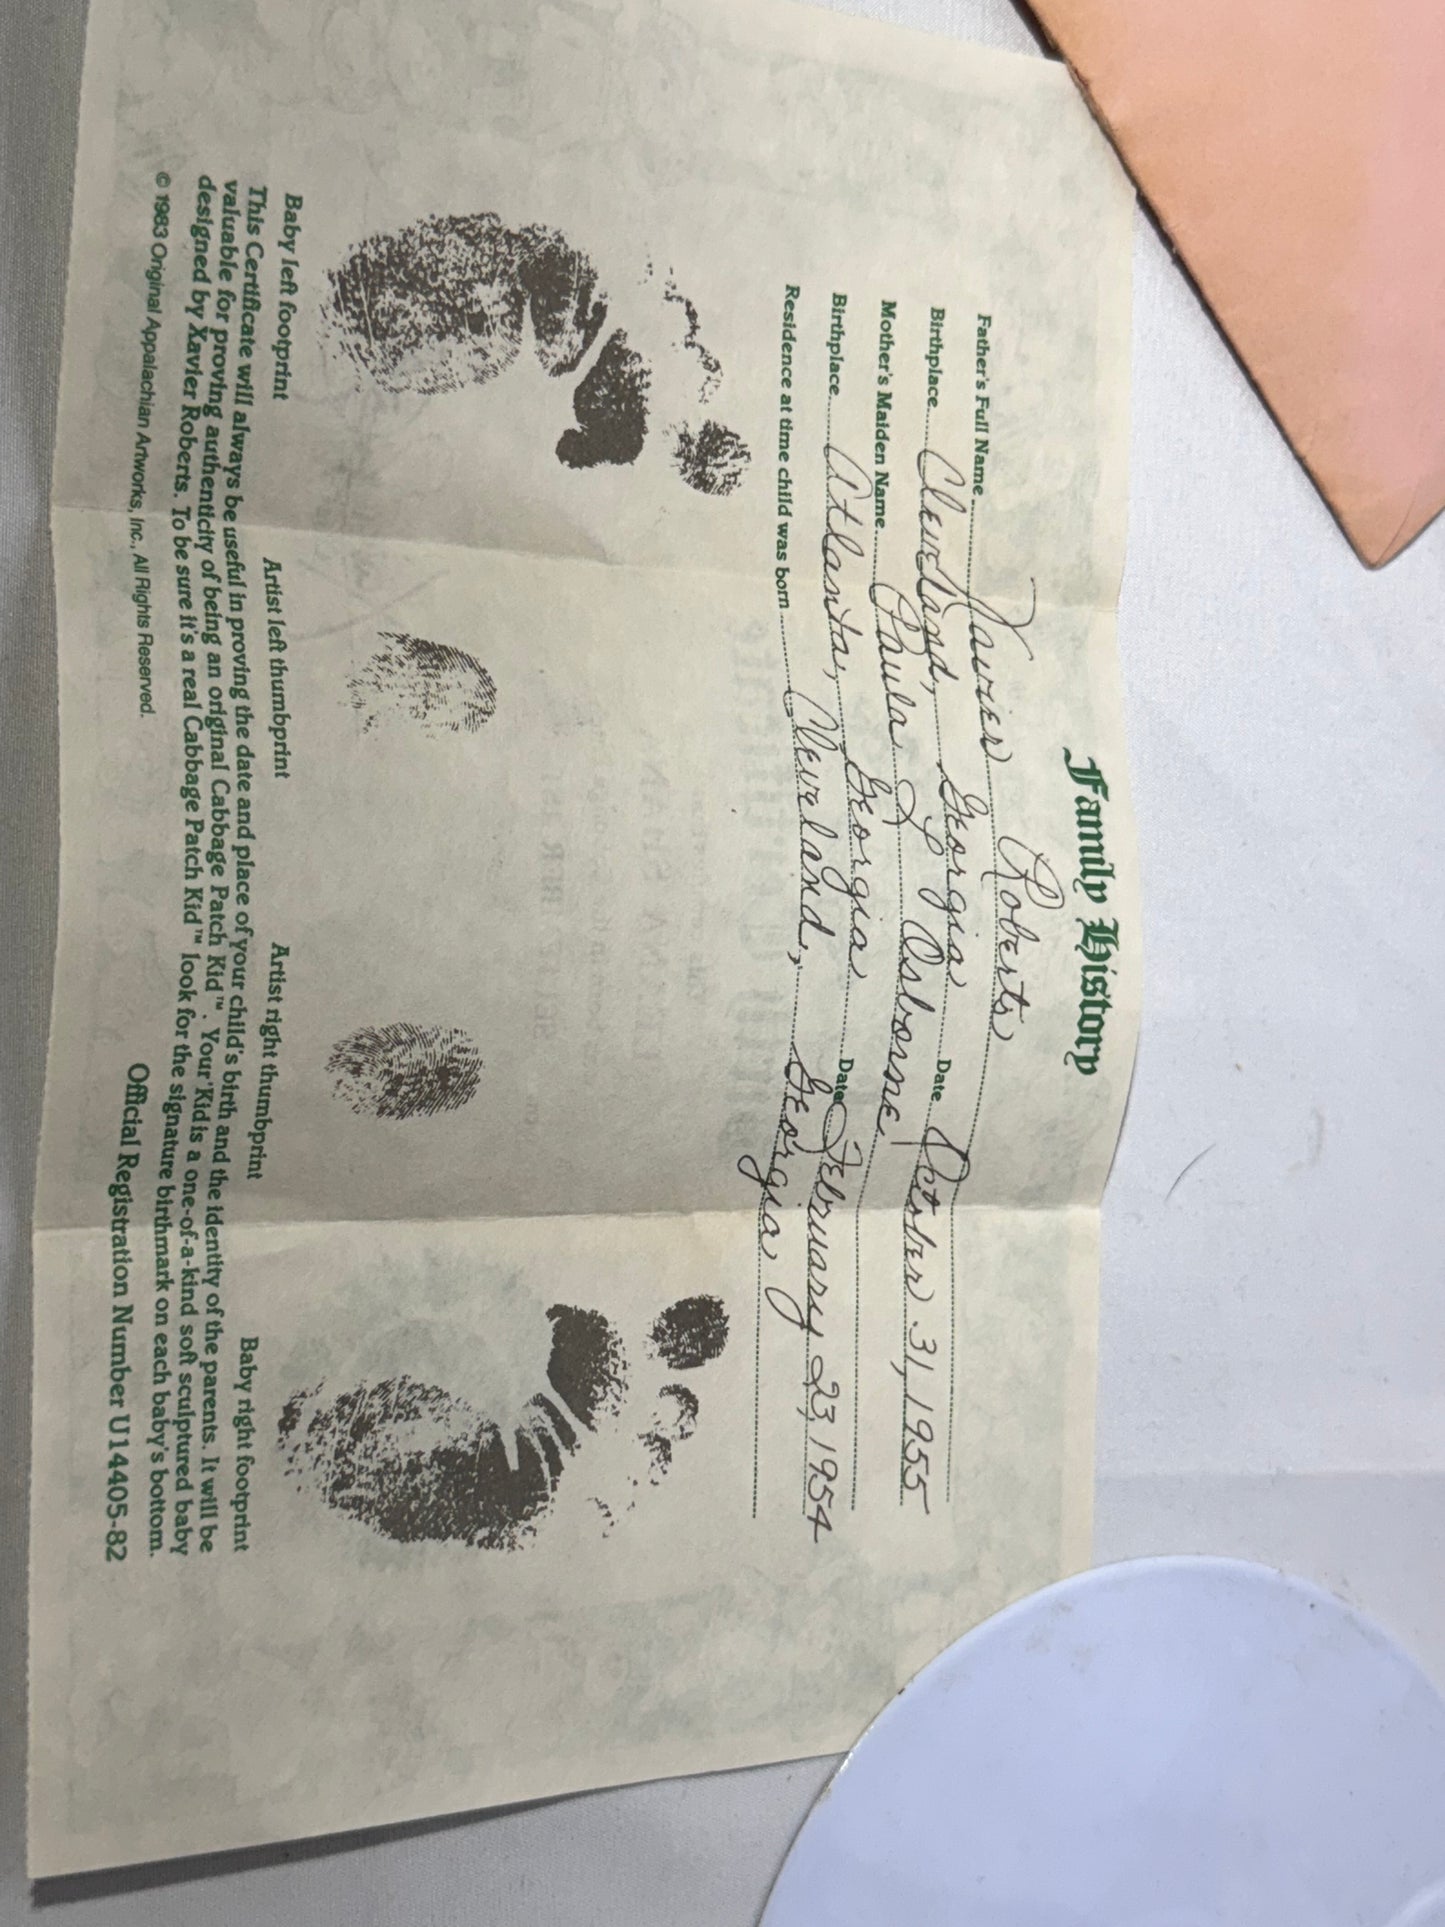 Family History
Father's Full Name Xavier Roberts
Birthplace Cleveland, Georgia Date October 31, 1955
Mother's Maiden Name Paula L Osborne
Birthplace Atlanta, Georgia Date February 23, 1954
Residence at time child was born Cleveland, Georgia
Baby left footprint Artist left thumbprint Artist right thumbprint Baby right footprint
This Certificate will always be useful in proving the date and place of your child's birth and the identity of the parents. It will be
valuable for proving authenticity of being an original Cabbage Patch Kid™. Your 'Kid is a one-of-a-kind soft sculptured baby
designed by Xavier Roberts. To be sure it's a real Cabbage Patch Kid™ look for the signature birthmark on each baby's bottom.
© 1983 Original Appalachian Artworks, Inc., All Rights Reserved. Official Registration Number U14405-82